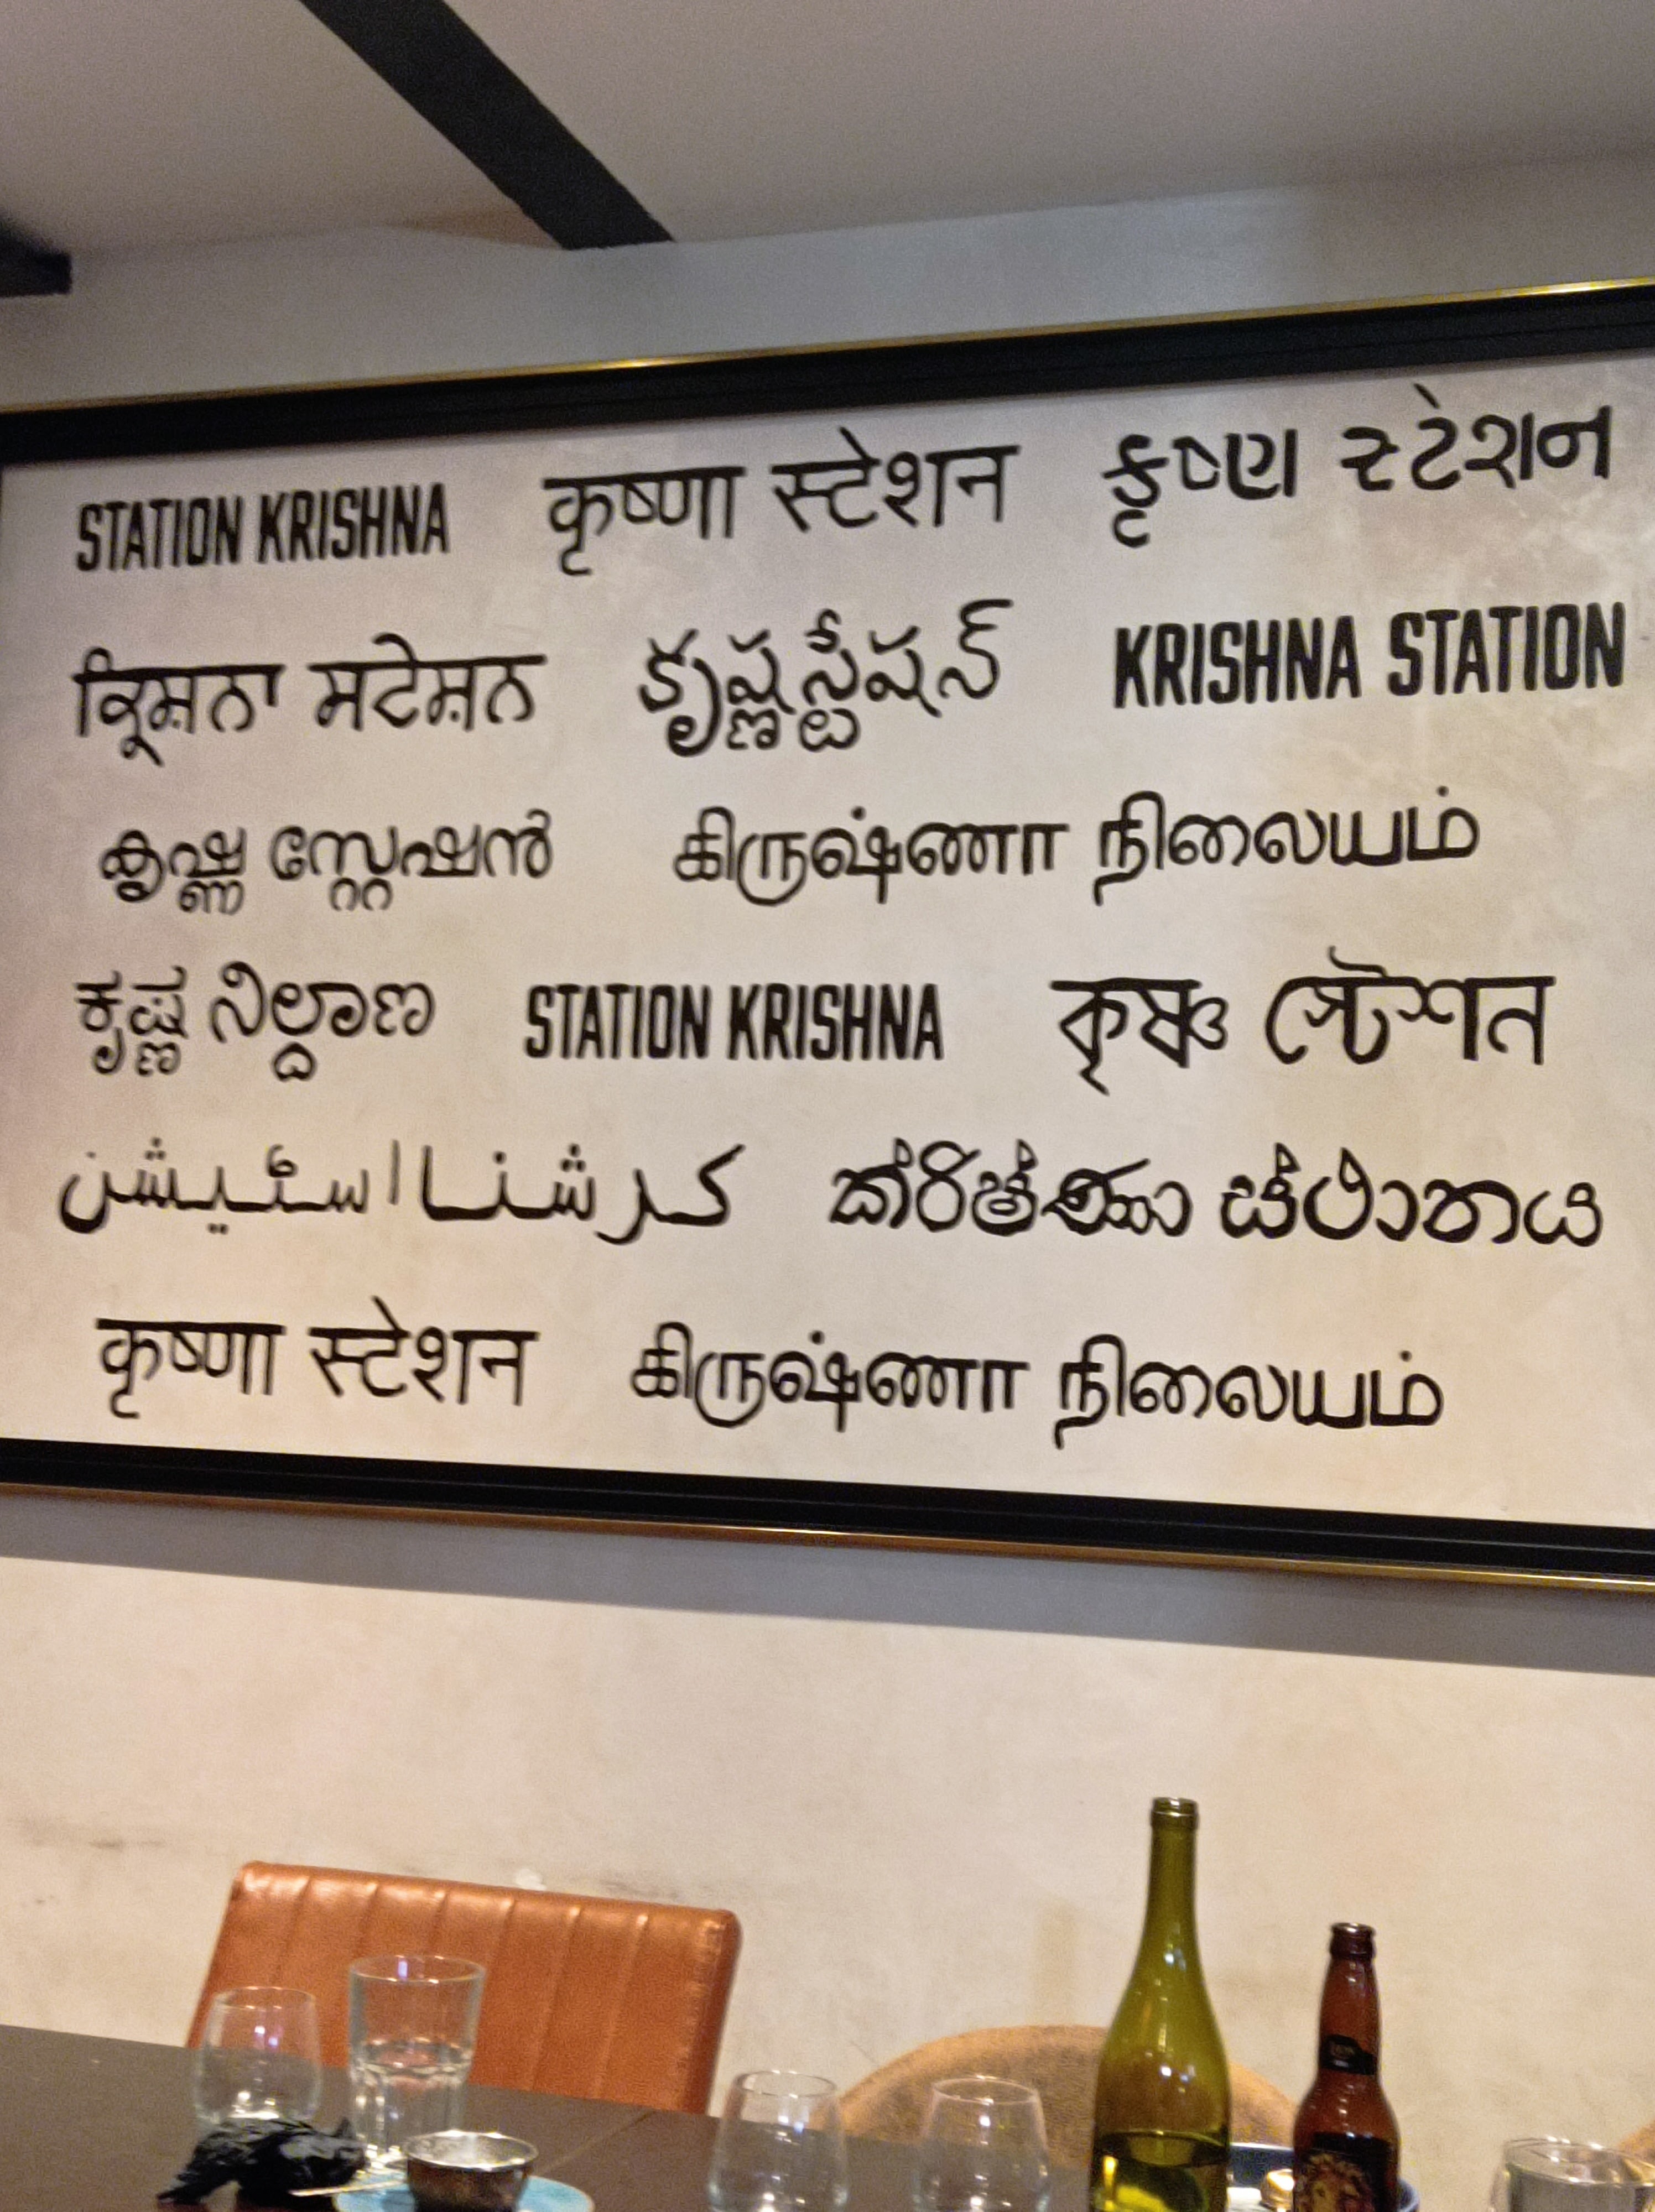 STATION KRISHNA कृष्णा स्टेशन કૃષ્ણ સ્ટેશન
ਕ੍ਰਿਸ਼ਨਾ ਸਟੇਸ਼ਨ కృష్ణ స్టేషన్ KRISHNA STATION
കൃഷ്ണ സ്റ്റേഷൻ கிருஷ்ணா நிலையம்
ಕೃಷ್ಣ ನಿಲ್ದಾಣ STATION KRISHNA কৃষ্ণ স্টেশন
کرشنا اسٹیشن ක්රිෂ්ණා ස්ථානය
कृष्णा स्टेशन கிருஷ்ணா நிலையம்